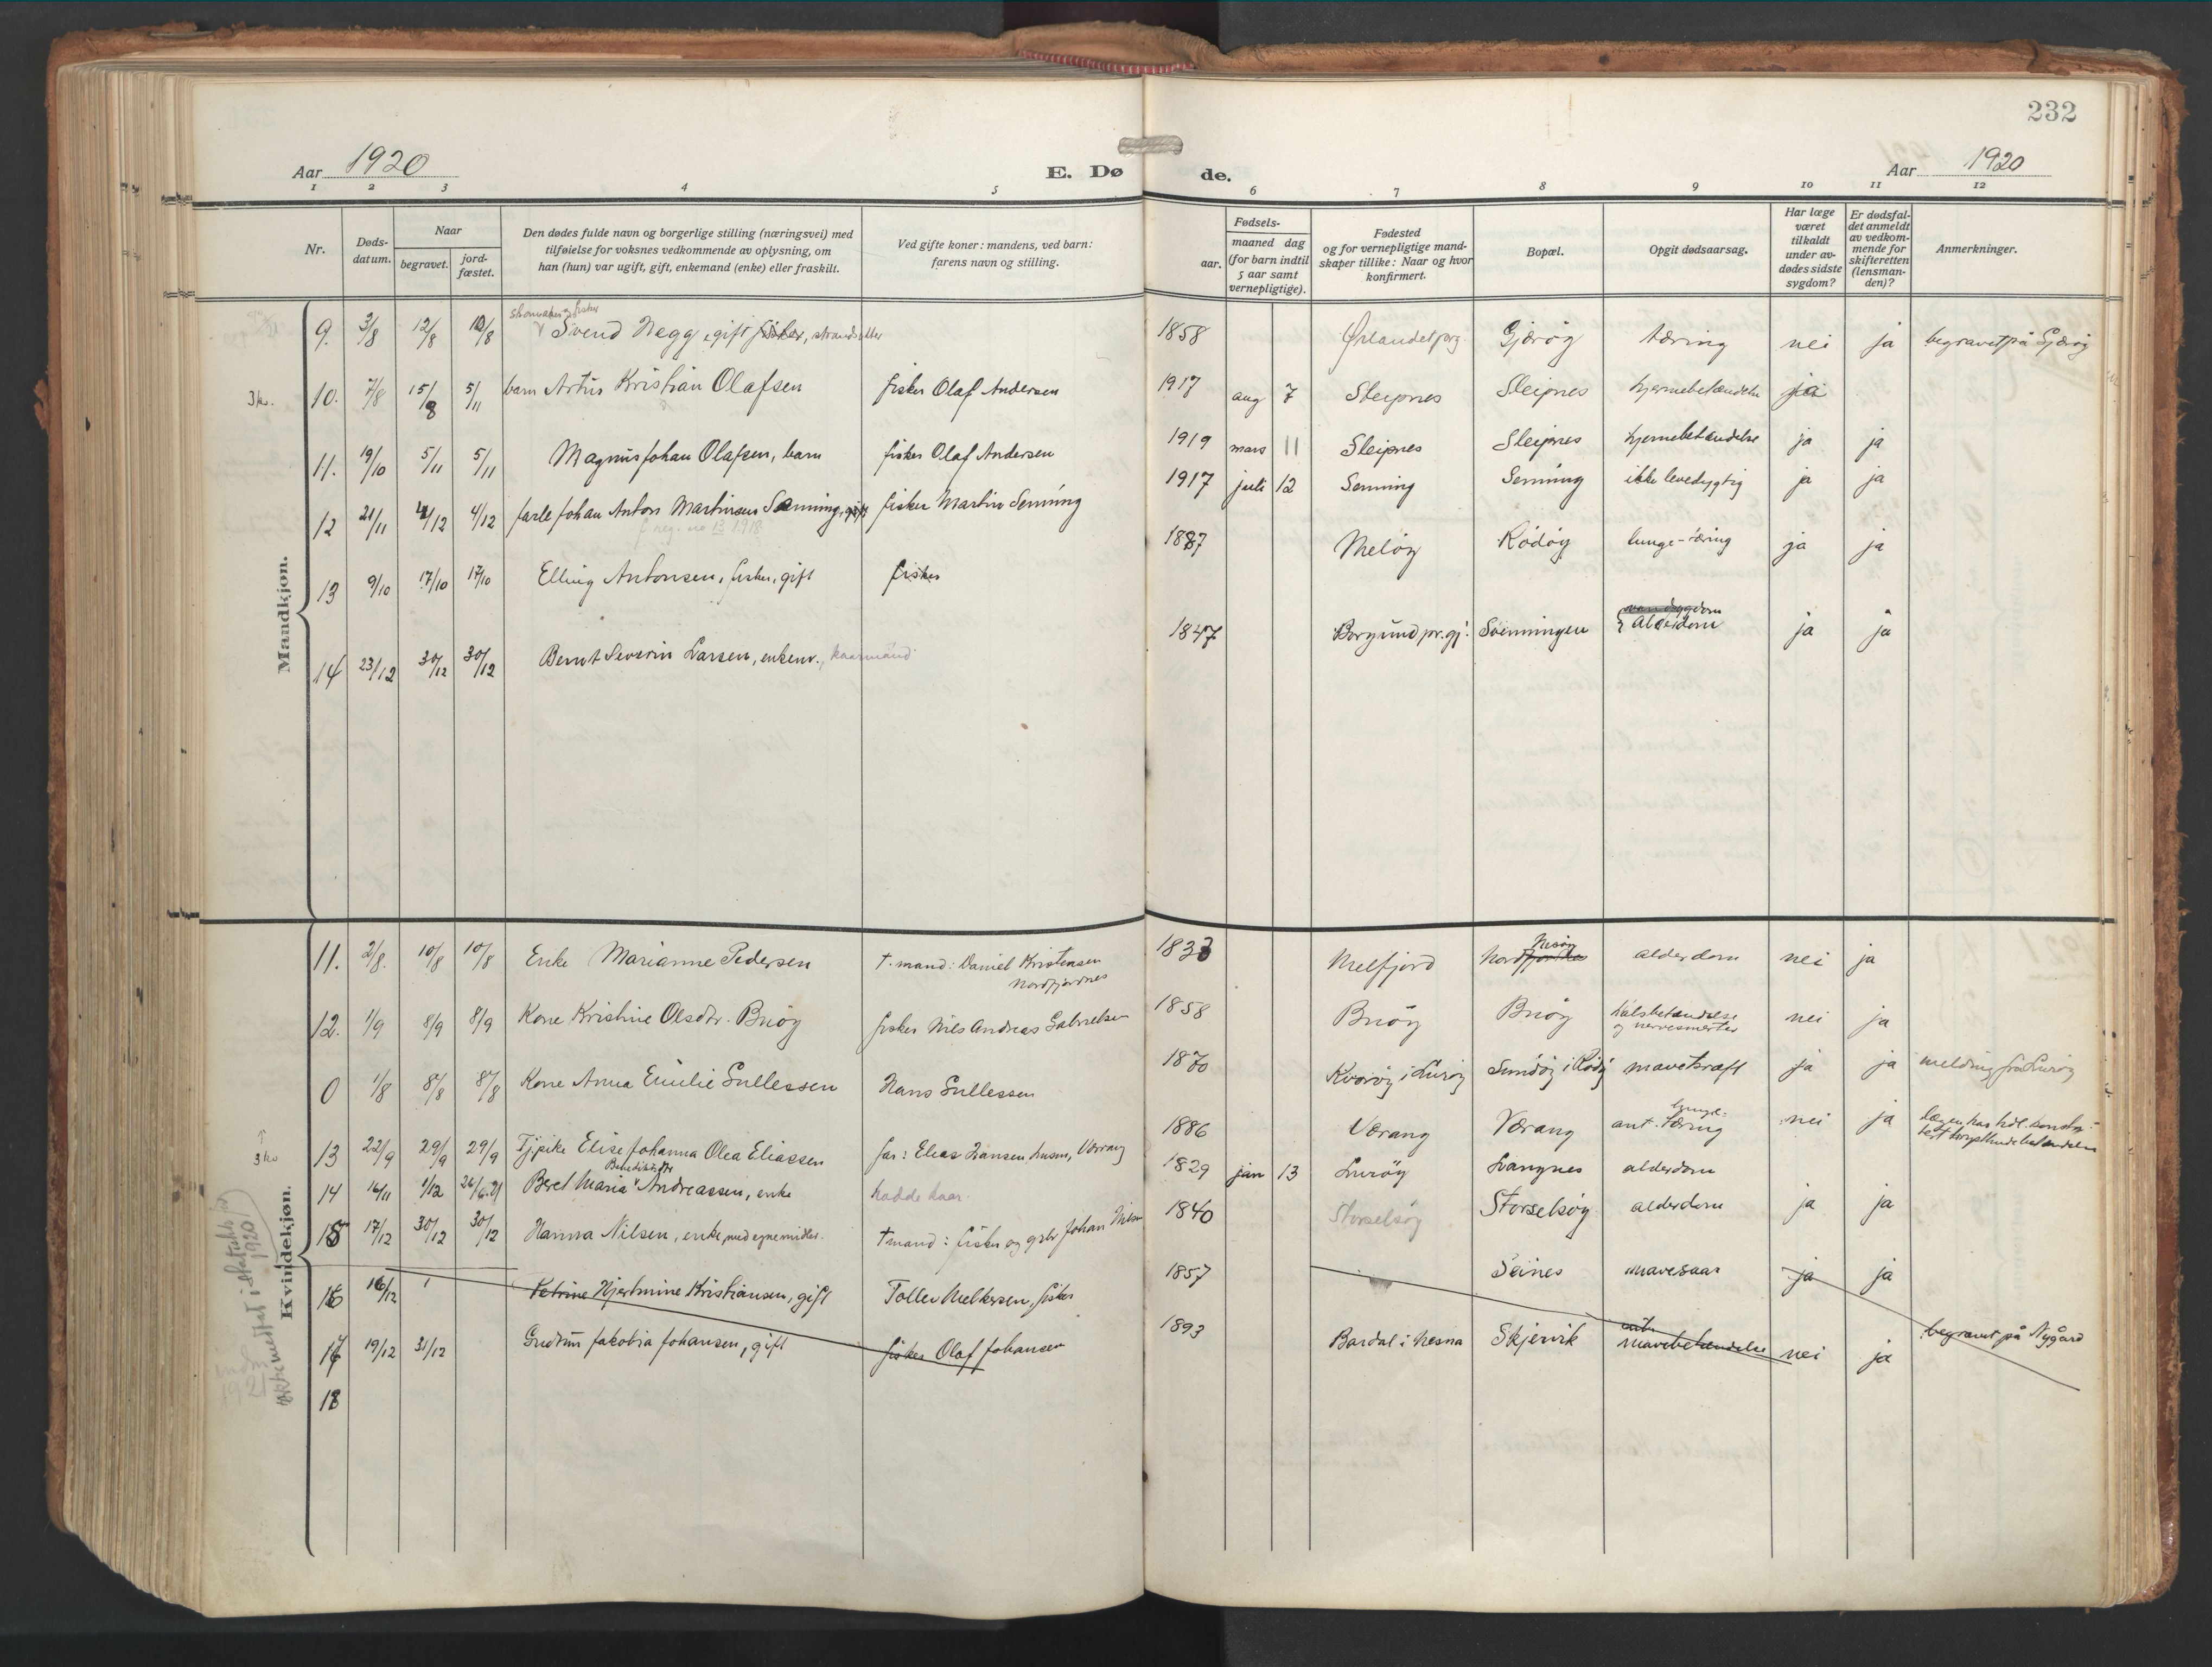 232
Aar 1920 E. Dø de. Aar 1920
1 2 3 4 5 6 7 8 9 10 11 12
Nr.
Døds-
datum.
Naar
begravet.
jord-
fæstet.
Den dødes fulde navn og borgerlige stilling (næringsvei) med
tilføielse for voksnes vedkommende av oplysning, om
han (hun) var ugift, gift, enkemand (enke) eller fraskilt.
Ved gifte koner: mandens, ved barn:
farens navn og stilling.
Fødsels-
aar.
maaned dag
(for barn indtil
5 aar samt
vernepligtige).
Fødested
og for vernepligtige mand-
skaper tillike: Naar og hvor
konfirmert.
Bopæl.
Opgit dødsaarsag.
Har læge
været
tilkaldt
under av-
dødes sidste
sygdom?
Er dødsfal-
det anmeldt
av vedkom-
mende for
skifteretten
(lensman-
den)?
Anmerkninger.
Mandkjøn.
9. 3/8 12/8 10/8 Svend Hegg, gift fisker, strandsitter 1858 Ørlandet prg. Gjærøy tæring nei ja begravet på Gjærøy
10. 7/8 15/8 5/11 barn Artus Kristian Olafsen fisker Olaf Andersen 1917 aug 7 Sleipnes Sleipnes hjernebetændelse ja
11. 19/10 5/11 5/11 Magnus Johan Olafsen, barn fisker Olaf Andersen 1919 mars 11 Sleipnes Sleipnes hjernebetændelse ja ja
12 21/11 4/12 4/12 Jarle Johan Anton Martinsen Senning, fisker Martin Senning 1917 juli 12 Senning Senning ikke levedygtig ja ja
13 9/10 17/10 17/10 Elling Antonsen, fisker, gift fisker 1887 Meløy Rødøy lunge-tæring ja ja
14 23/12 30/12 30/12 Bernt Severin Larsen, enkem., kaarmand 1847 Borgund pr.gj. Svenningen Alderdom ja ja
Kvindekjøn.
11. 2/8. 10/8 10/8 Enke Marianne Pedersen †. mand: Daniel Kristensen
Nordfjordnes
1833 Melfjord Nesøy alderdom nei ja
12. 1/9 8/9 8/9 Kone Kristine Olsdtr. Buøy fisker Nils Andreas Gabrielsen 1858 Buøy Buøy halsbetændelse
og nervesmerter nei ja
0 1/8 8/8 8/8 Kone Anna Emilie Gullessen Hans Gullessen 1870 Kvarøy i Lurøy Sundøy i Rødøy mavekræft ja ja melding fra Lurøy
13 22/9 29/9 29/9 Tj.pike Elise Johanna Olea Eliassen far: Elias Hansen husm, Værang 1886 Værang Værang ant. lunge-tæring nei ja
14 16/11 1/12 26/6.21 Beret Maria Benediktsdtr Andreassen, enke hadde kaar. 1829 jan 13 Lurøy Langnes alderdom
15 17/12 30/12 30/12 Hanna Nilsen, enke, med egne midler. † mand: fisker og grbr Johan Nilsen 1840 Storselsøy Storselsøy alderdom ja ja
16 16/12 Petrine Hjertmine Kristiansen, gift Tollev Melkersen, fisker 1857 Seines mavesaar ja ja
17 19/12 31/12 Gudrun Jakobia Johansen, gift fisker Olaf Johansen 1893 Bardal i Nesna Skjervik mavebetændelse nei ja begravet på Nygård
18